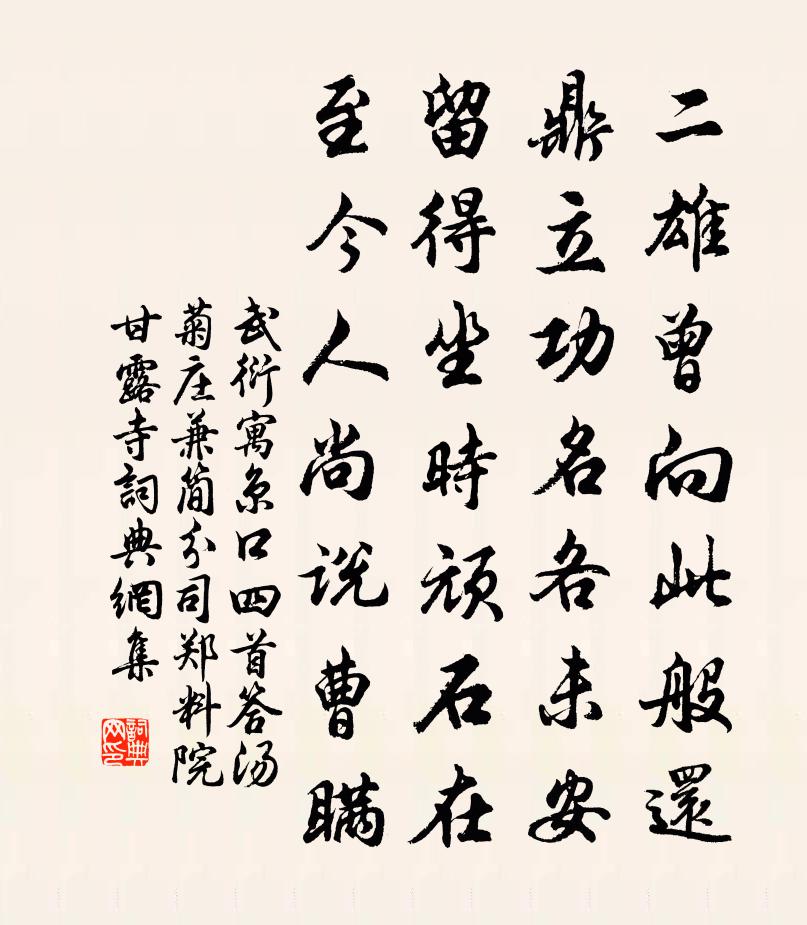 二雄曾向此般還
鼎立功名各未安
留得坐時頑石在
至今人尚说曹瞞
武衍寓京口四首答汤
菊庄兼简分司郑料院
甘露寺詞典網集
詞典
网印